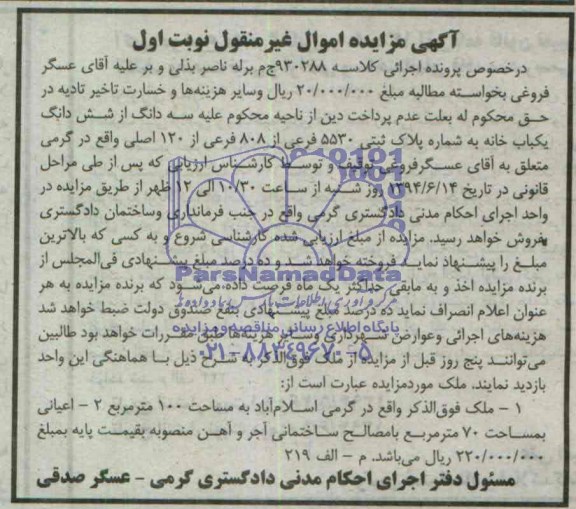 آگهی مزایده اموال غیر منقول نوبت اول
درخصوص پرونده اجرائی کلاسه ۹۳۰۲۸۸ج‌م برله ناصر بذلی و بر علیه آقای عسگر
فروغی بخواسته مطالبه مبلغ ۲۰/۰۰۰/۰۰۰ ریال وسایر هزینه‌ها و خسارت تاخیر تادیه در
حق محکوم له بعلت عدم پرداخت دین از ناحیه محکوم علیه سه دانگ از شش دانگ
یکباب خانه به شماره پلاک ثبتی ۵۵۳۰ فرعی از ۸۰۸ فرعی از ۱۲۰ اصلی واقع در گرمی
متعلق به آقای عسگرفروغی توقیف و توسط کارشناس ارزیابی که پس از طی مراحل
قانونی در تاریخ ۱۳۹۴/۶/۱۴ روز شنبه از ساعت ۱۰/۳۰ الی ۱۲ ظهر از طریق مزایده در
واحد اجرای احکام مدنی دادگستری گرمی واقع در جنب فرمانداری وساختمان دادگستری
بفروش خواهد رسید. مزایده از مبلغ ارزیابی شده کارشناسی شروع و به کسی که بالاترین
مبلغ را پیشنهاد نماید فروخته خواهد شد و ده درصد مبلغ پیشنهادی فی‌المجلس از
برنده مزایده اخذ و به مابقی حداکثر یک ماه فرصت داده می‌شود که برنده مزایده به هر
عنوان اعلام انصراف نماید ده درصد مبلغ پیشنهادی بنفع صندوق دولت ضبط خواهد شد
هزینه‌های اجرائی وعوارض شهرداری وسایر هزینه‌ها طبق مقررات خواهد بود طالبین
می‌توانند پنج روز قبل از مزایده از ملک فوق‌الذکر به شرح ذیل با هماهنگی این واحد
بازدید نمایند. ملک موردمزایده عبارت است از:
۱ - ملک فوق‌الذکر واقع در گرمی اسلام‌آباد به مساحت ۱۰۰ مترمربع ۲ - اعیانی
بمساحت ۷۰ مترمربع بامصالح ساختمانی آجر و آهن منصوبه بقیمت پایه بمبلغ
۲۲۰/۰۰۰/۰۰۰ ریال می‌باشد. م - الف ۲۱۹
مسئول دفتر اجرای احکام مدنی دادگستری گرمی - عسگر صدقی
ParsNamadData
مرکز فرآوری اطلاعات پارس نماد داده‌ها
پایگاه اطلاع رسانی مناقصه و مزایده
۰۲۱-۸۸۳۴۹۶۷۰-۵